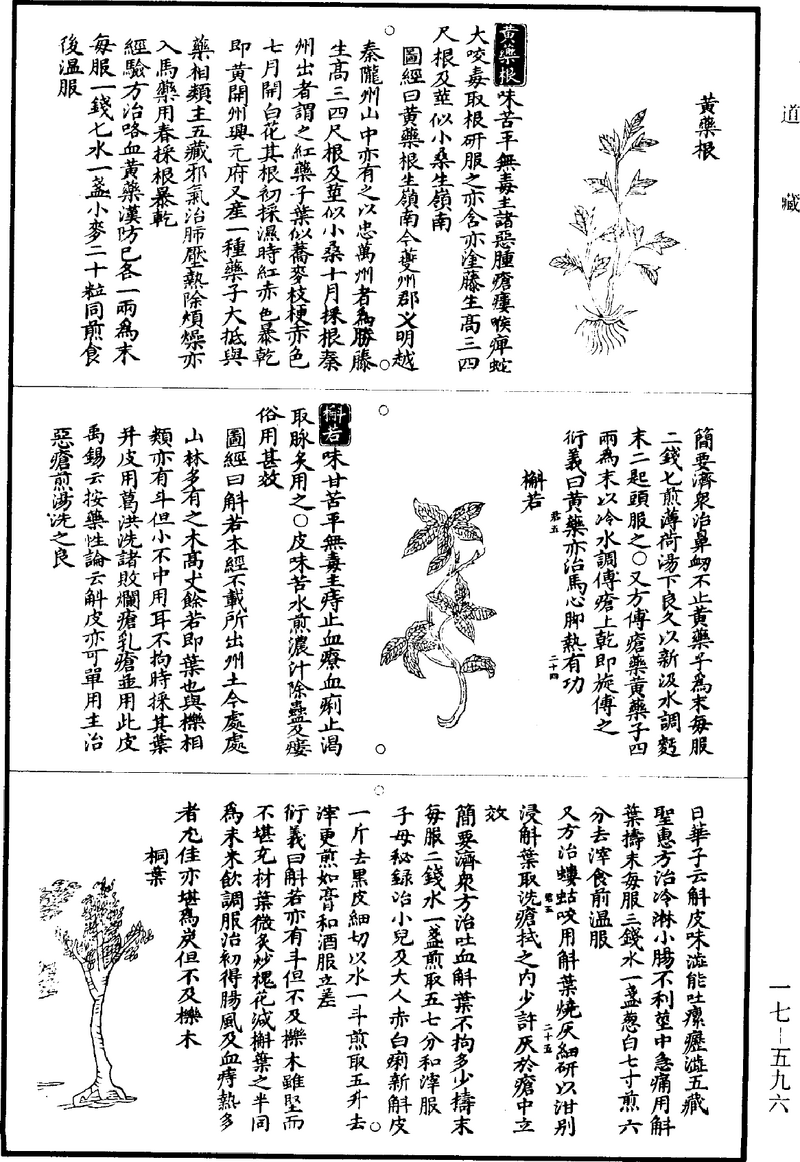 道藏
黃藥根
黃藥根 味苦平無毒主諸惡腫瘡瘻喉痺蛇
犬咬毒取根研服之亦含亦塗藤生高三四
尺根及莖似小桑生嶺南
圖經曰黃藥根生嶺南今夔州郡及明越
秦隴州山中亦有之以忠萬州者為勝藤
生高三四尺根及莖似小桑十月採根秦
州出者謂之紅藥子葉似蕎麥枝梗赤色
七月開白花其根初採濕時紅赤色暴乾
即黃開州興元府又產一種藥子大抵與
藥相類主五藏邪氣治肺壓熱除煩燥亦
入馬藥用春採根暴乾
經驗方治咯血黃藥漢防已各一兩為末
每服一錢匕水一盞小麥二十粒同煎食
後溫服
簡要濟衆治鼻衂不止黃藥子為末每服
二錢匕煎薄荷湯下良久以新汲水調麪
末二匙頭服之○又方傅瘡藥黃藥子四
兩為末以冷水調傅瘡上乾即旋傅之
衍義曰黃藥亦治馬心脚熱有功
君五
二十四
槲若
槲若 味甘苦平無毒主痔止血療血痢止渴
取脉炙用之○皮味苦水煎濃汁除蠱及瘻
俗用甚效
圖經曰斛若本經不載所出州土今處處
山林多有之木高丈餘若即葉也與櫟相
類亦有斗但小不中用耳不拘時採其葉
并皮用葛洪洗諸敗爛瘡乳瘡並用此皮
禹錫云按藥性論云斛皮亦可單用主治
惡瘡煎湯洗之良
日華子云斛皮味澁能吐瘰癧澁五藏
聖惠方治冷淋小腸不利莖中急痛用斛
葉擣末每服三錢水一盞葱白七寸煎六
分去滓食前溫服
又方治螻蛄咬用斛葉燒灰細研以泔別
浸斛葉取洗瘡拭之内少許灰於瘡中立
君五
二十五
效
簡要濟衆方治吐血斛葉不拘多少擣末
每服二錢水一盞煎取五七分和滓服
子母秘録治小兒及大人赤白痢新斛皮
一斤去黑皮細切以水一斗煎取五升去
滓更煎如膏和酒服立差
衍義曰斛若亦有斗但不及櫟木雖堅而
不堪充材葉微炙炒槐花減槲葉之半同
為末米飲調服治初得腸風及血痔熱多
者尤佳亦堪為炭但不及櫟木
桐葉
一七—五九六